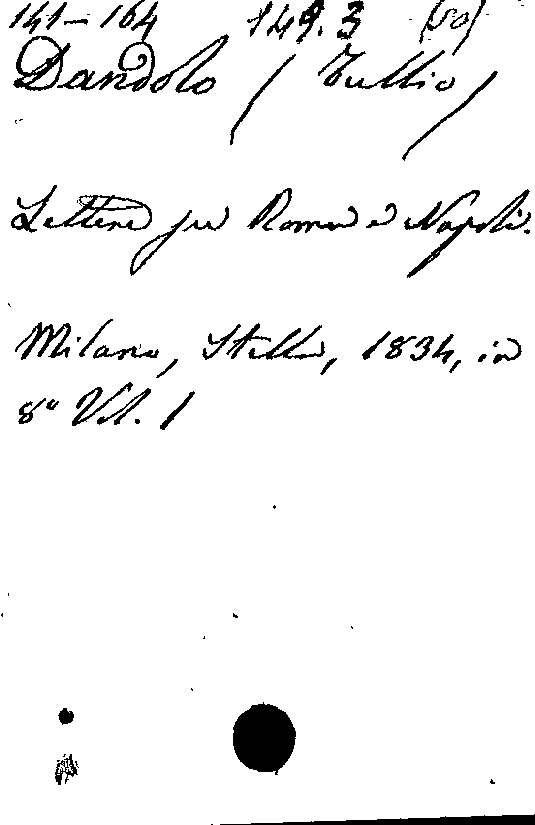 141-164 149.3 (50)
Dandolo (Tullio)
Lettere su Roma e Napoli.
Milano, Stella, 1834, in
8° Vol. 1